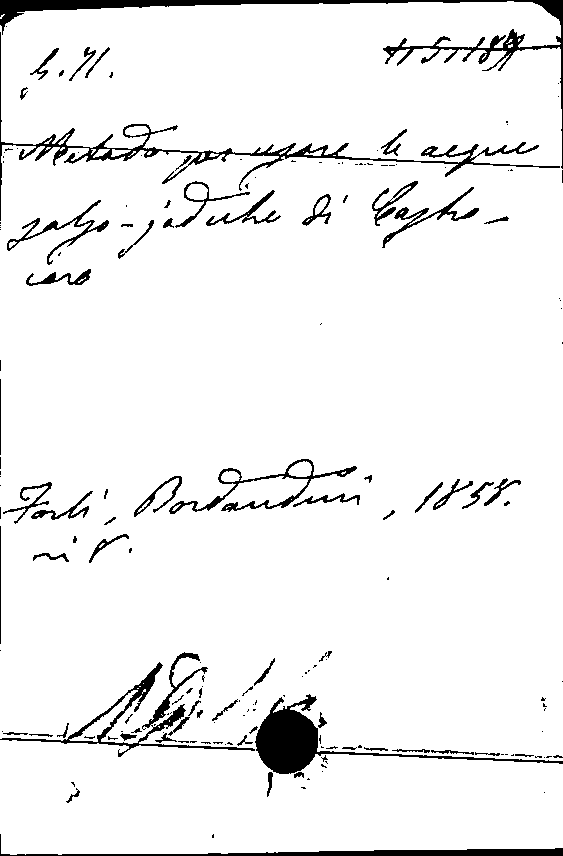 Metodo per usare le acque
salso-jodiche di Castro-
caro
Forlì, Bordandini, 1858.
in 8.